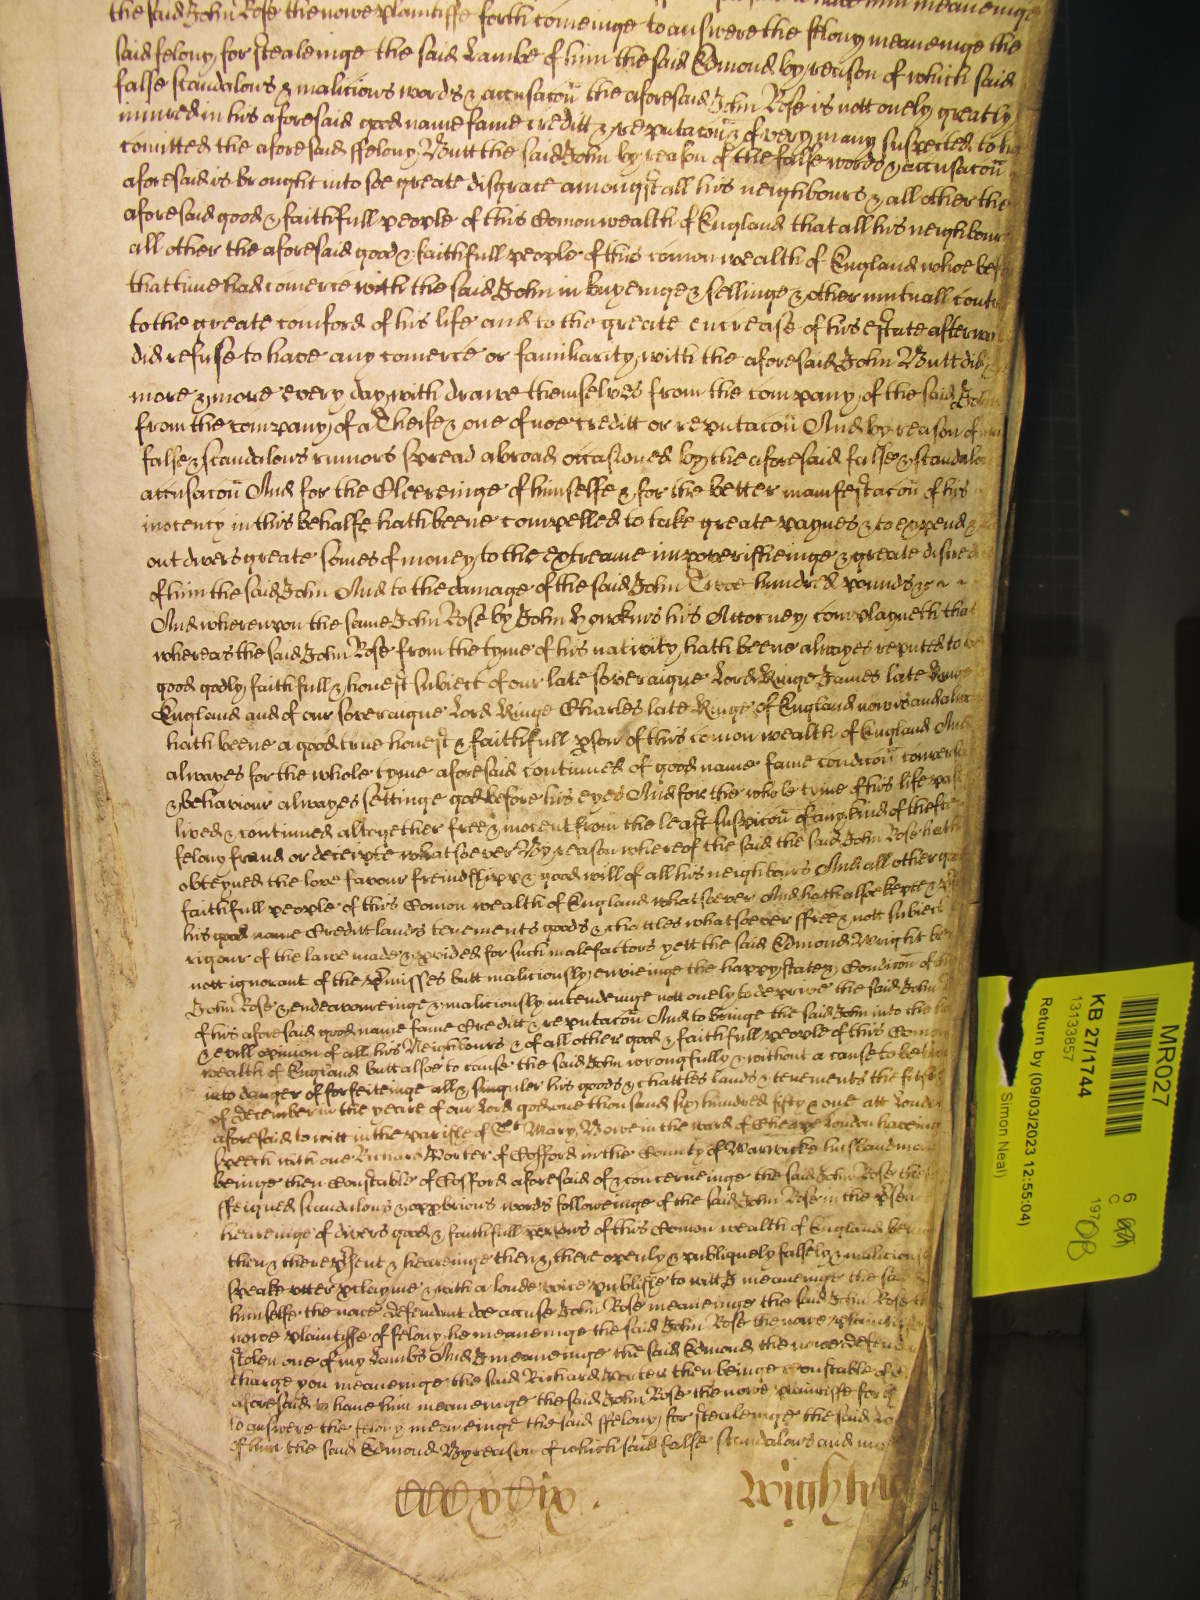 the said John Rose the nowe plaintiffe forth comeinge to answere the felony meaneinge the
said felony for stealeinge the said Lambe of him the said Edmond by reason of which said
false scandalous & malicious words & accusacoñ the aforesaid John Rose is nott onely greatly
iniured in his aforesaid good name fame creditt & reputacoñ & of very many suspected to ha
comitted the aforesaid ffelony Butt the said John by reason of the false words & accusacoñ
aforesaid is brought into soe greate disgrace amongst all his neighbours & all other the
aforesaid good & faithfull people of this Comonwealth of England that all his neighbours
all other the aforesaid good & faithfull people of this comon wealth of England whoe bef
that time had comerce with the said John in buyeinge & sellinge & other mutuall cont
to the greate comford of his life and to the greate encrease of his estate afterwar
did refuse to have any comerce or familiarity with the aforesaid John Butt did
more & more every day with drawe themselves from the company of the said John
from the company of a Theife & one of noe creditt or reputacoñ And by reason of
false & scandalous rumors spread abroad occasioned by the aforesaid false & scandalo
accusacoñ And for the Cleereinge of himselfe & for the better manifestacoñ of his
inocency in this behalfe hath beene compelled to take greate paynes & to expend &
out divers greate somes of money to the extreame impoverisheinge & greate discredi
of him the said John And to the damage of the said John Twoe hundred pounds
And whereupon the same John Rose by John Hawkins his Attorney complayneth that
whereas the said John Rose from the tyme of his nativity hath beene alwayes reputed to be
good godly faithfull & honest subiect of our late soveraigne Lord Kinge James late Kinge
England and of our soveraigne Lord Kinge Charles late Kinge of England nowe is and alwa
hath beene a good true honest & faithfull pson of this comon wealth of England And
alwayes for the whole tyme aforesaid continued of good name fame condicoñ convers
& behaviour alwayes settinge god before his eyes And for the whole tyme of his life past
lived & continued altogether free & inocent from the least suspicoñ of any kind of thefte
felony fraud or deceipte whatsoever By reason whereof the said the said John Rose hath
obteyned the love favour freindshipp & good will of all his neighbours And all other goo
faithfull people of this Comon wealth of England whatsoever And hath alsoe kepte &
his good name Creditt lands tenements goods & chattles whatsoever ffree & nott subiect
rigour of the lawe made & pvided for such malefactors yett the said Edmond Wright bei
nott ignorant of the pmisses butt maliciously envieinge the happy state & Condicoñ of
John Rose & endeavoureinge & maliciously intendeinge nott onely to deprive the said John
of his aforesaid good name fame Creditt & reputacoñ And to bringe the said John into the
& evill opinion of all his Neighbours & of all other good & faithfull people of this Comon
wealth of England butt alsoe to cause the said John wrongfully & without a cause to be
into danger of forfeiteinge all & singuler his goods & chattles lands & tenements the
of december in the yeare of our Lord god one thousand six hundred fifty & one att London
aforesaid to witt in the parishe of St Mary Bowe in the ward of Cheape London haveing
speech with one Richard Porter of Cosford in the County of Warwicke husbandman
beinge then Constable of Cosford aforesaid of & concerneinge the said John Rose these
ffeigned scandalous & opprbrious words followeinge of the said John Rose in the psen
heareinge of divers good & faithfull persons of this Comon wealth of England bein
then & there psent & heareinge then & there openly & publiquely falsely & maliciou
speake utter pclayme & with a loude voice publishe to witt I meaneinge the said
himselfe the nowe defendant doe accuse John Rose meaneinge the said John Rose the
nowe plaintiffe of felony he meaneinge the said John Rose the nowe plaintiffe
stolen one of my Lambs And I meaneinge the said Edmond the nowe defend
charge you meaneinge the said Richard Porter then beinge Constable of C
aforesaid to have him meaneinge the said John Rose the nowe plaintiffe for
to answere the felony meaneinge the said ffelony for stealeinge the said La
of him the said Edmond By reason of which said false scandalous and ma
CCCxCix .
Wightwi
MR027
KB 27/1744
13133857
Return by (09/03/2023 12:55:04)
Simon Neal)
6
C
197